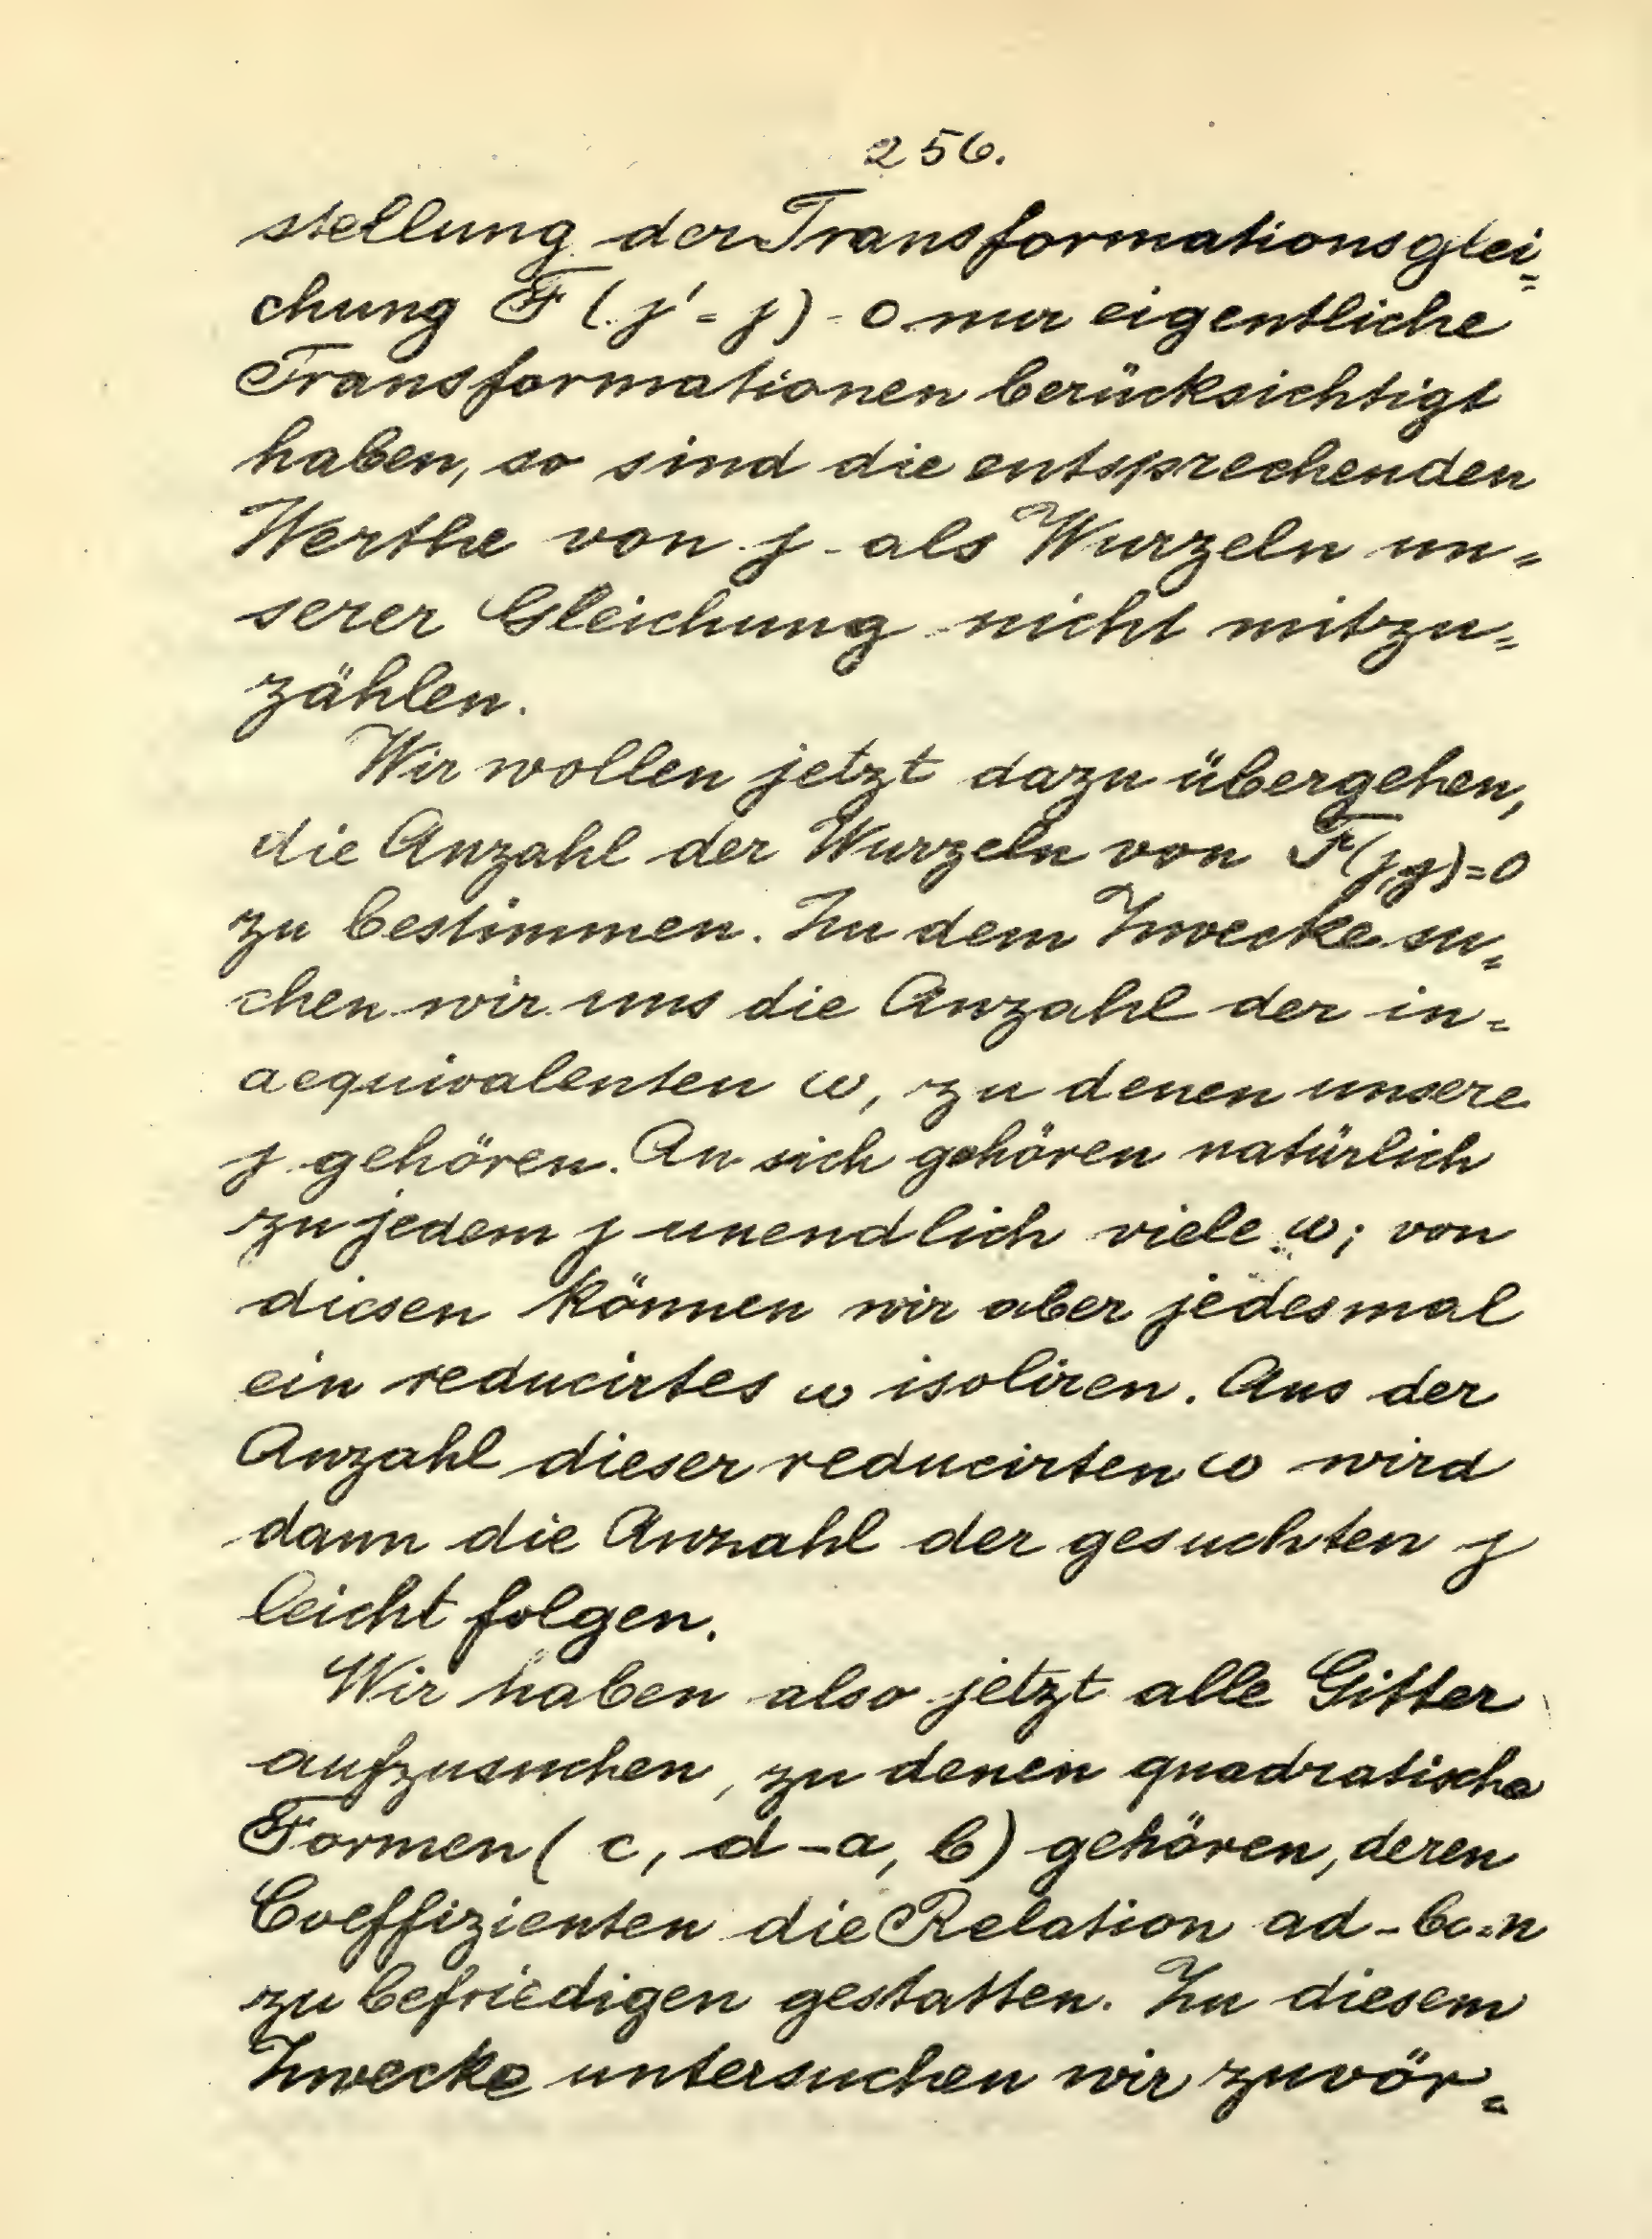 256.
stellung der Transformationsglei=
chung F (j' = j) = 0 nur eigentliche
Transformationen berücksichtigt
haben, so sind die entsprechenden
Werthe von j als Wurzeln un=
serer Gleichung nicht mitzu=
zählen.
Wir wollen jetzt dazu übergehen,
die Anzahl der Wurzeln von F(j,j)=0
zu bestimmen. Zu dem Zwecke su=
chen wir uns die Anzahl der in=
aequivalenten ω, zu denen unsere
j gehören. An sich gehören natürlich
zu jedem j unendlich viele ω; von
diesen können wir aber jedesmal
ein reducirtes ω isoliren. Aus der
Anzahl dieser reducirten ω wird
dann die Anzahl der gesuchten j
leicht folgen.
Wir haben also jetzt alle Gitter
aufzusuchen, zu denen quadratische
Formen ( c, d-a, b) gehören, deren
Coeffizienten die Relation ad-bc=n
zu befriedigen gestatten. Zu diesem
Zwecke untersuchen wir zuvör=